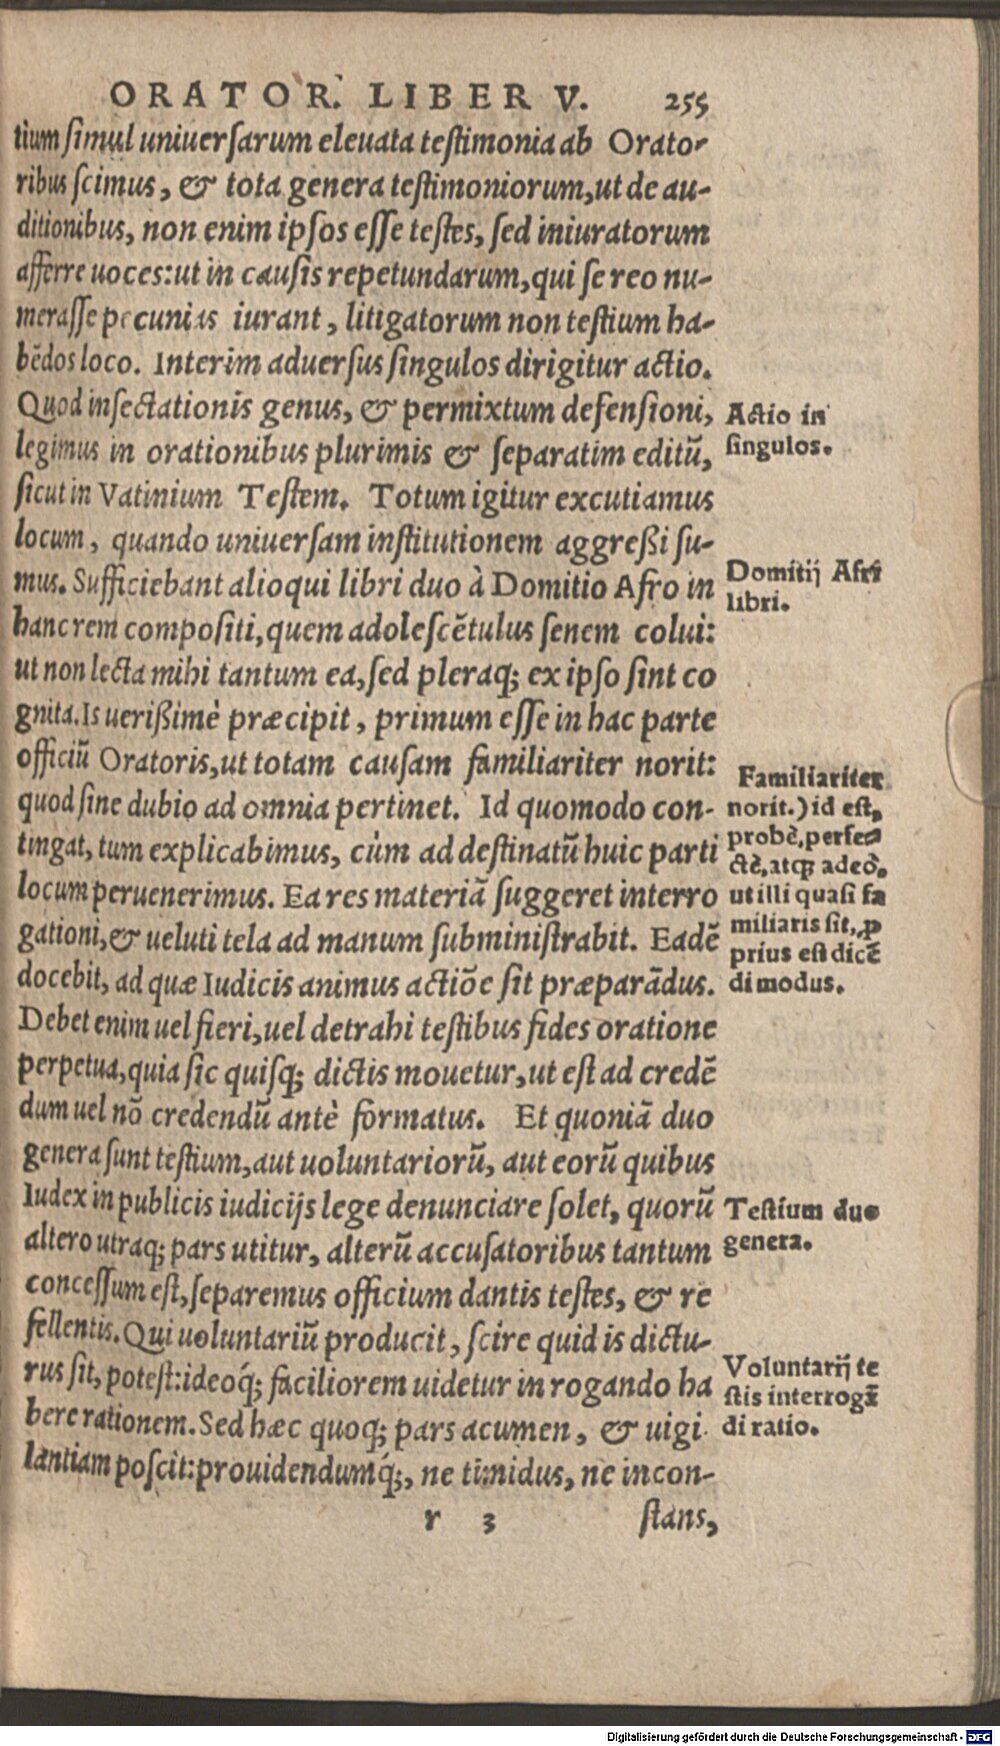 ORATOR. LIBER V. 255
tium simul uniuersarum eleuata testimonia ab Orato-
ribus scimus, & tota genera testimoniorum, ut de au-
ditionibus, non enim ipsos esse testes, sed iniuratorum
afferre uoces: ut in causis repetundarum, qui se reo nu-
merasse pecunias iurant, litigatorum non testium ha-
bẽdos loco. Interim aduersus singulos dirigitur actio.
Quod insectationis genus, & permixtum defensioni,
legimus in orationibus plurimis & separatim editũ,
sicut in Vatinium Testem. Totum igitur excutiamus
locum, quando uniuersam institutionem aggreßi su-
mus. Sufficiebant alioqui libri duo à Domitio Afro in
hanc rem compositi, quem adolescẽtulus senem colui:
ut non lecta mihi tantum ea, sed pleraq; ex ipso sint co
gnita. Is uerißimè præcipit, primum esse in hac parte
officiũ Oratoris, ut totam causam familiariter norit:
quod sine dubio ad omnia pertinet. Id quomodo con-
tingat, tum explicabimus, cùm ad destinatũ huic parti
locum peruenerimus. Ea res materiã suggeret interro
gationi, & ueluti tela ad manum subministrabit. Eadẽ
docebit, ad quæ Iudicis animus actiõe sit præparãdus.
Debet enim uel fieri, uel detrahi testibus fides oratione
perpetua, quia sic quisq; dictis mouetur, ut est ad credẽ
dum uel nõ credendũ antè formatus. Et quoniã duo
genera sunt testium, aut uoluntariorũ, aut eorũ quibus
Iudex in publicis iudicijs lege denunciare solet, quorũ
altero utraq; pars utitur, alterũ accusatoribus tantum
concessum est, separemus officium dantis testes, & re
fellentis. Qui uoluntariũ producit, scire quid is dictu-
rus sit, potest: ideoq́; faciliorem uidetur in rogando ha
bere rationem. Sed hæc quoq; pars acumen, & uigi
lantiam poscit: prouidendumq́;, ne timidus, ne incon-
r 3 stans,
Actio in
singulos.
Domitij Afri
libri.
Familiariter
norit.) id est,
probè, perfe-
ctè, atq; adeò,
ut illi quasi fa
miliaris sit, ꝓ
prius est dicẽ
di modus.
Testium duo
genera.
Voluntarij te
stis interrogã
di ratio.
Digitalisierung gefördert durch die Deutsche Forschungsgemeinschaft - DFG